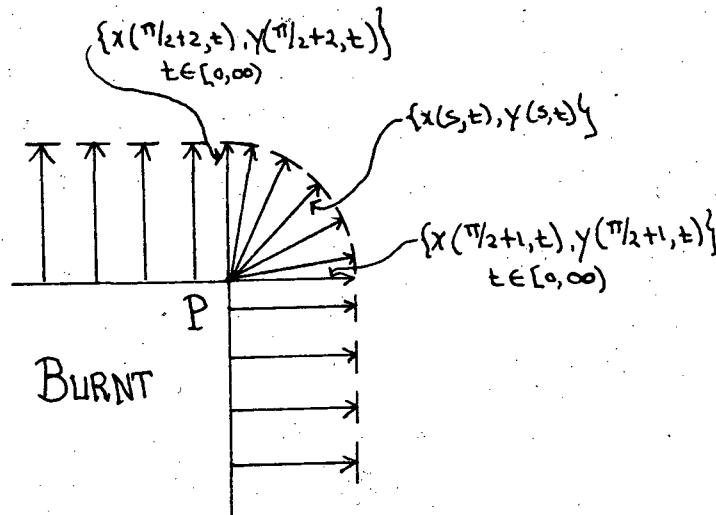 {x(π/2+2,t),y(π/2+2,t)}
t∈[0,∞)
{x(s,t),y(s,t)}
{x(π/2+1,t),y(π/2+1,t)}
t∈[0,∞)
P
BURNT